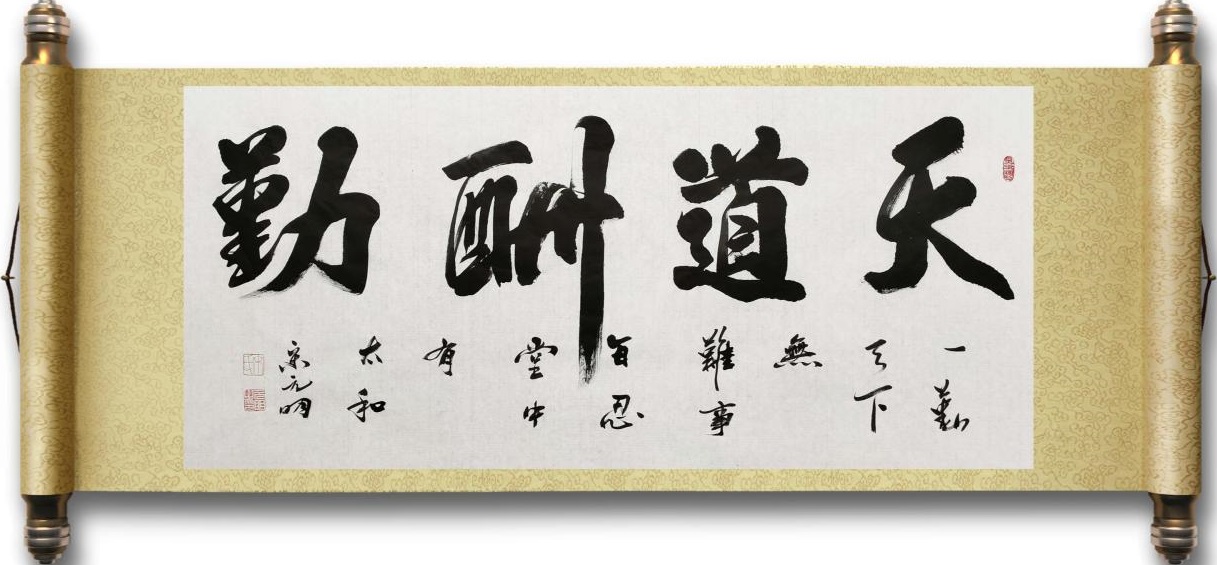 天道酬勤
一勤
天下
無
難事
百忍
堂中
有
太和
宋元明